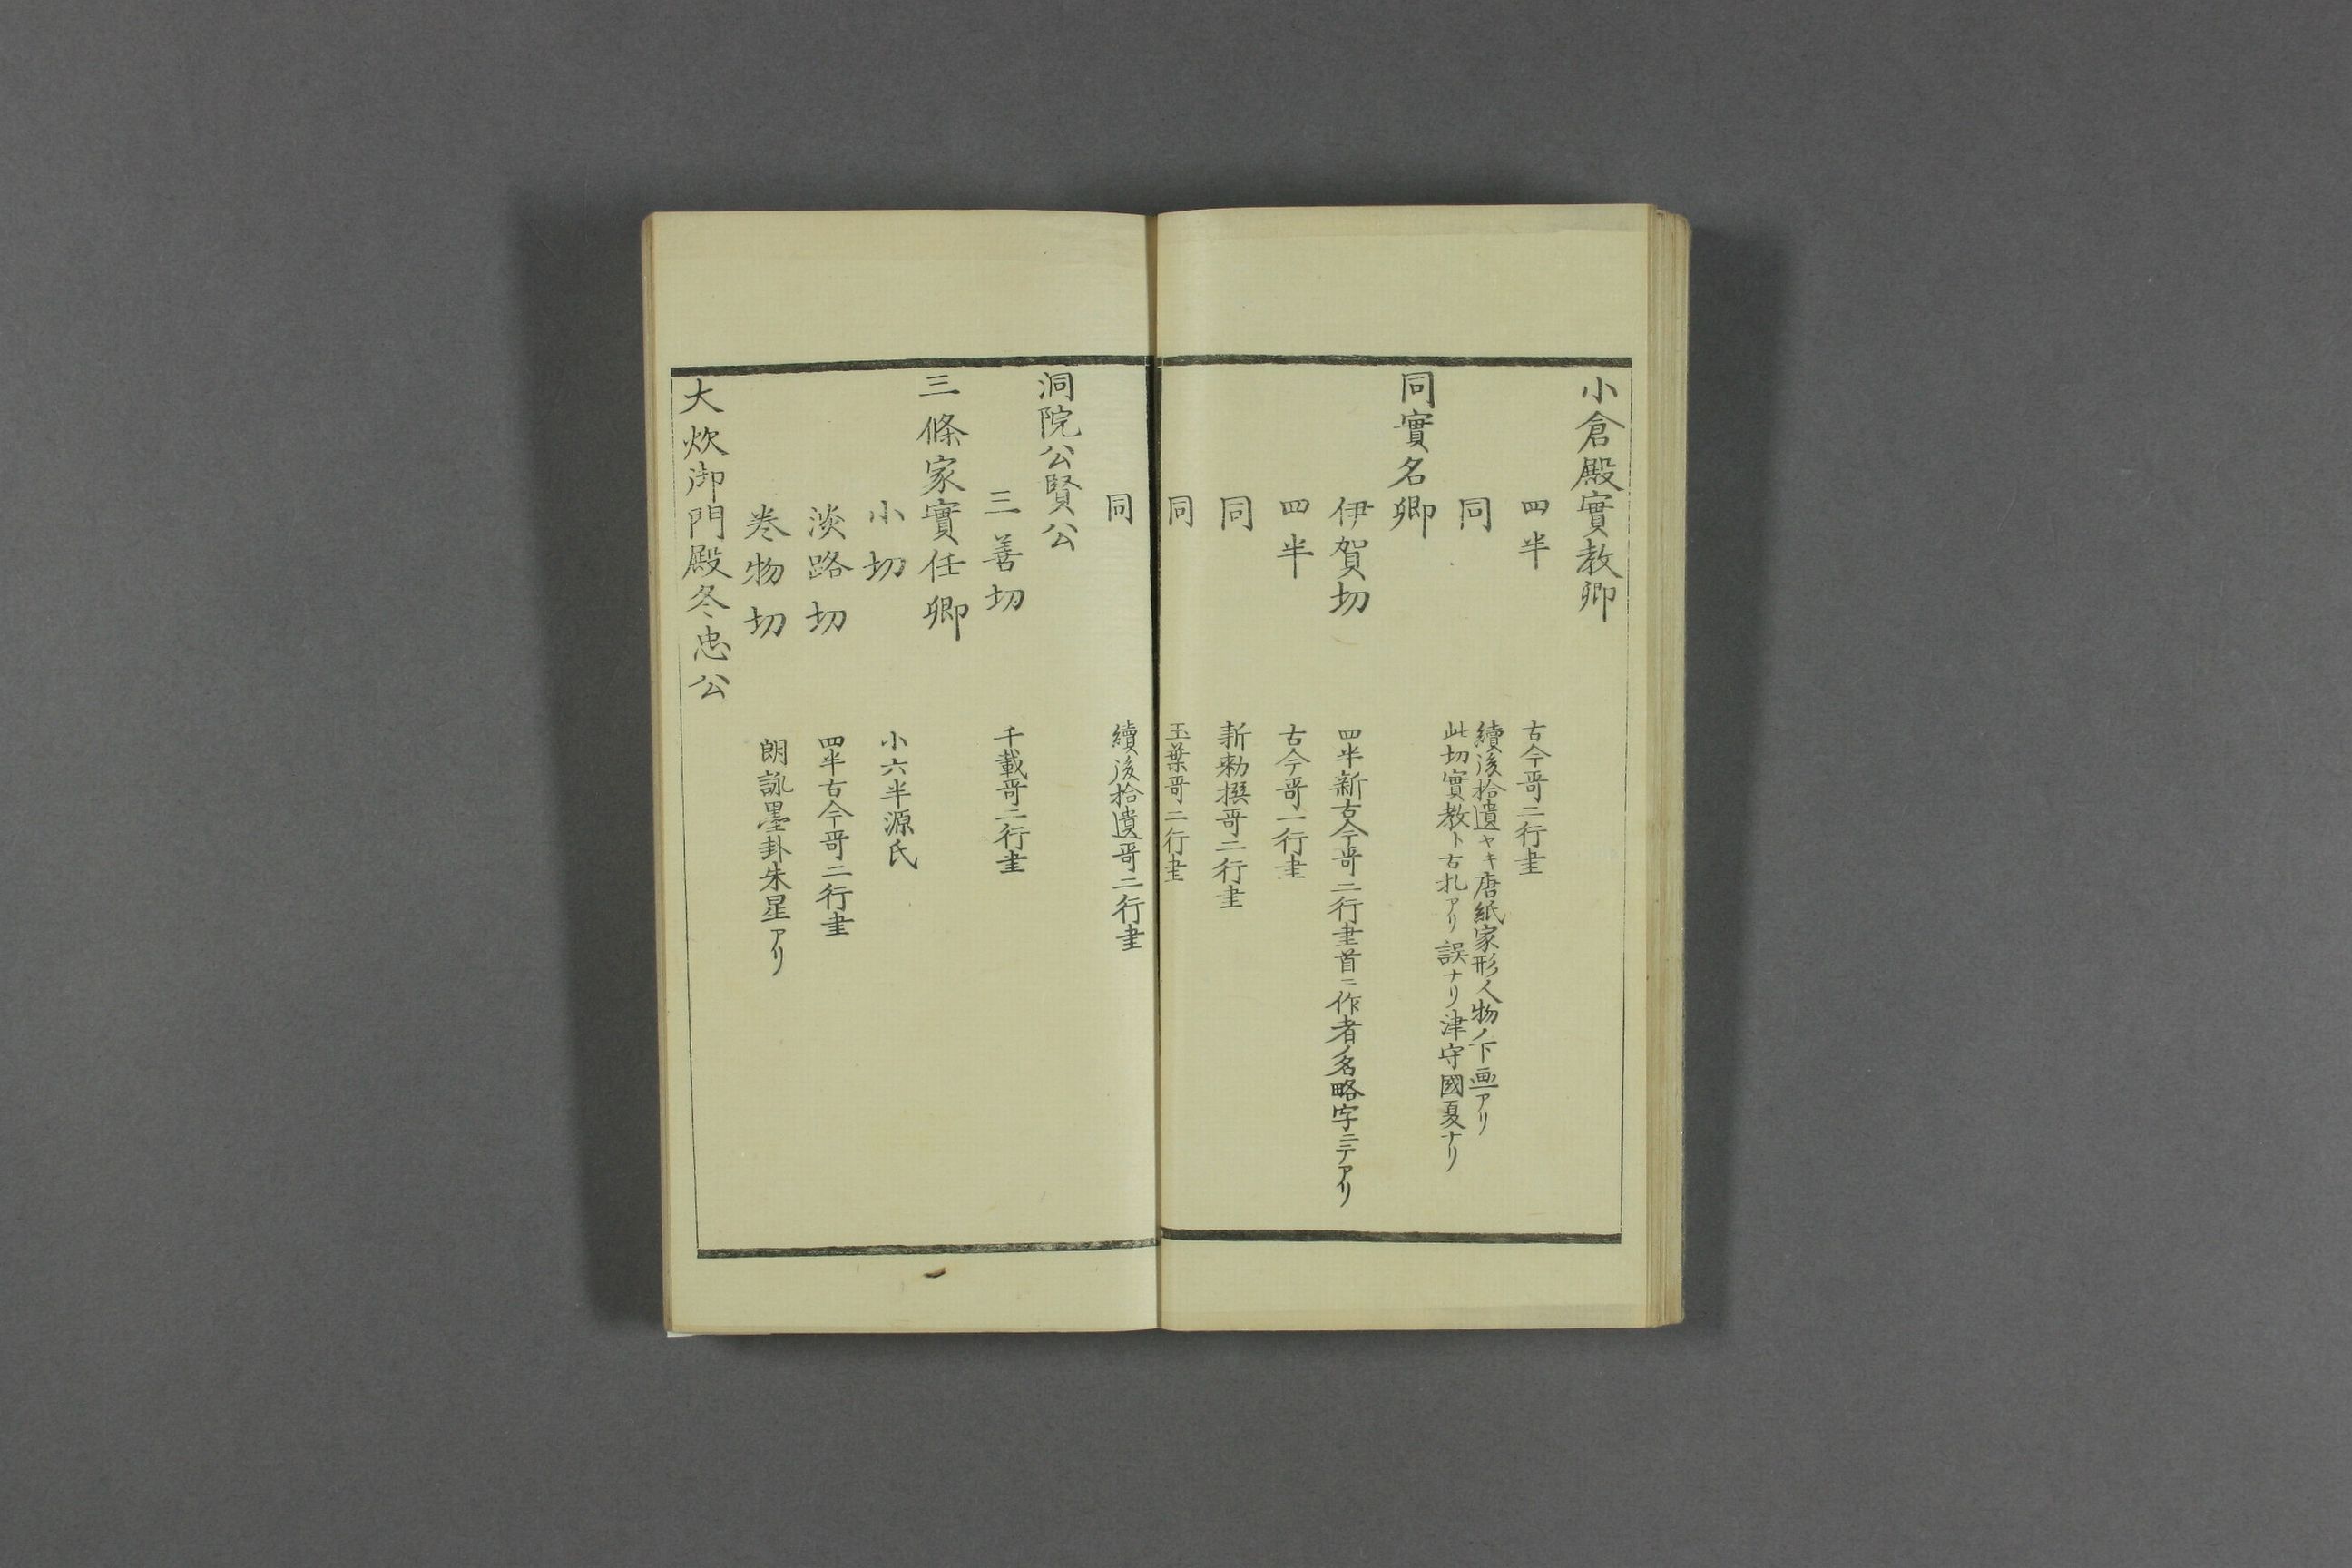 小倉殿實教卿
四半 古今哥二行書
同 續後拾遺ヤキ唐紙家形人物ノ下画アリ
此切實教ト古札アリ誤ナリ津守國夏ナリ
同實名卿
伊賀切 四半新古今哥二行書首ニ作者ノ名略字ニテアリ
四半 古今哥一行書
同 新勅撰哥二行書
同 玉葉哥二行書
同 續後拾遺哥二行書
洞院公賢公
三善切 千載哥二行書
三條家實任卿
小切 小六半源氏
淡路切 四半古今哥二行書
巻物切 朗詠墨卦朱星アリ
大炊御門殿冬忠公